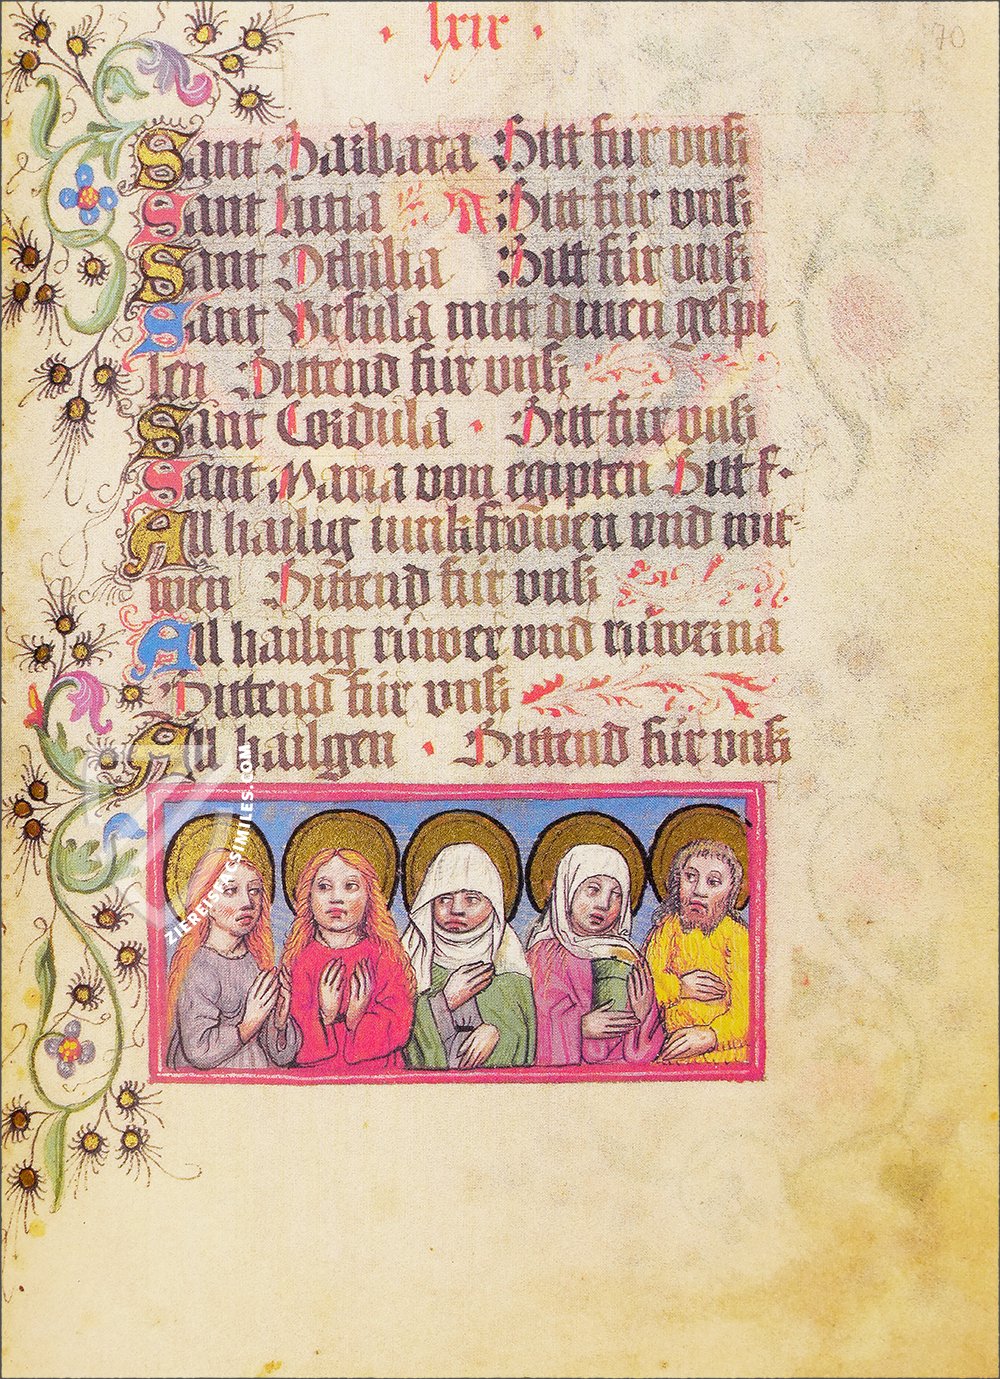 · lxix ·
70
Sant Barbara Bitt für vnß
Sant lucia Bitt für vnß
Sant Othilia Bitt für vnß
Sant Vrsula mitt diuen gespi
len Bittend für vnß
Sant Cordula · Bitt für vnß
Sant Maria von egipten Bitt f·
All hailig iunkfrowen vnd wit
wen Bittend für vnß
All hailig rüwer vnd rüwerina
Bittend für vnß
All hailgen · Bittend für vnß
ZIEREISFACSIMILES.COM